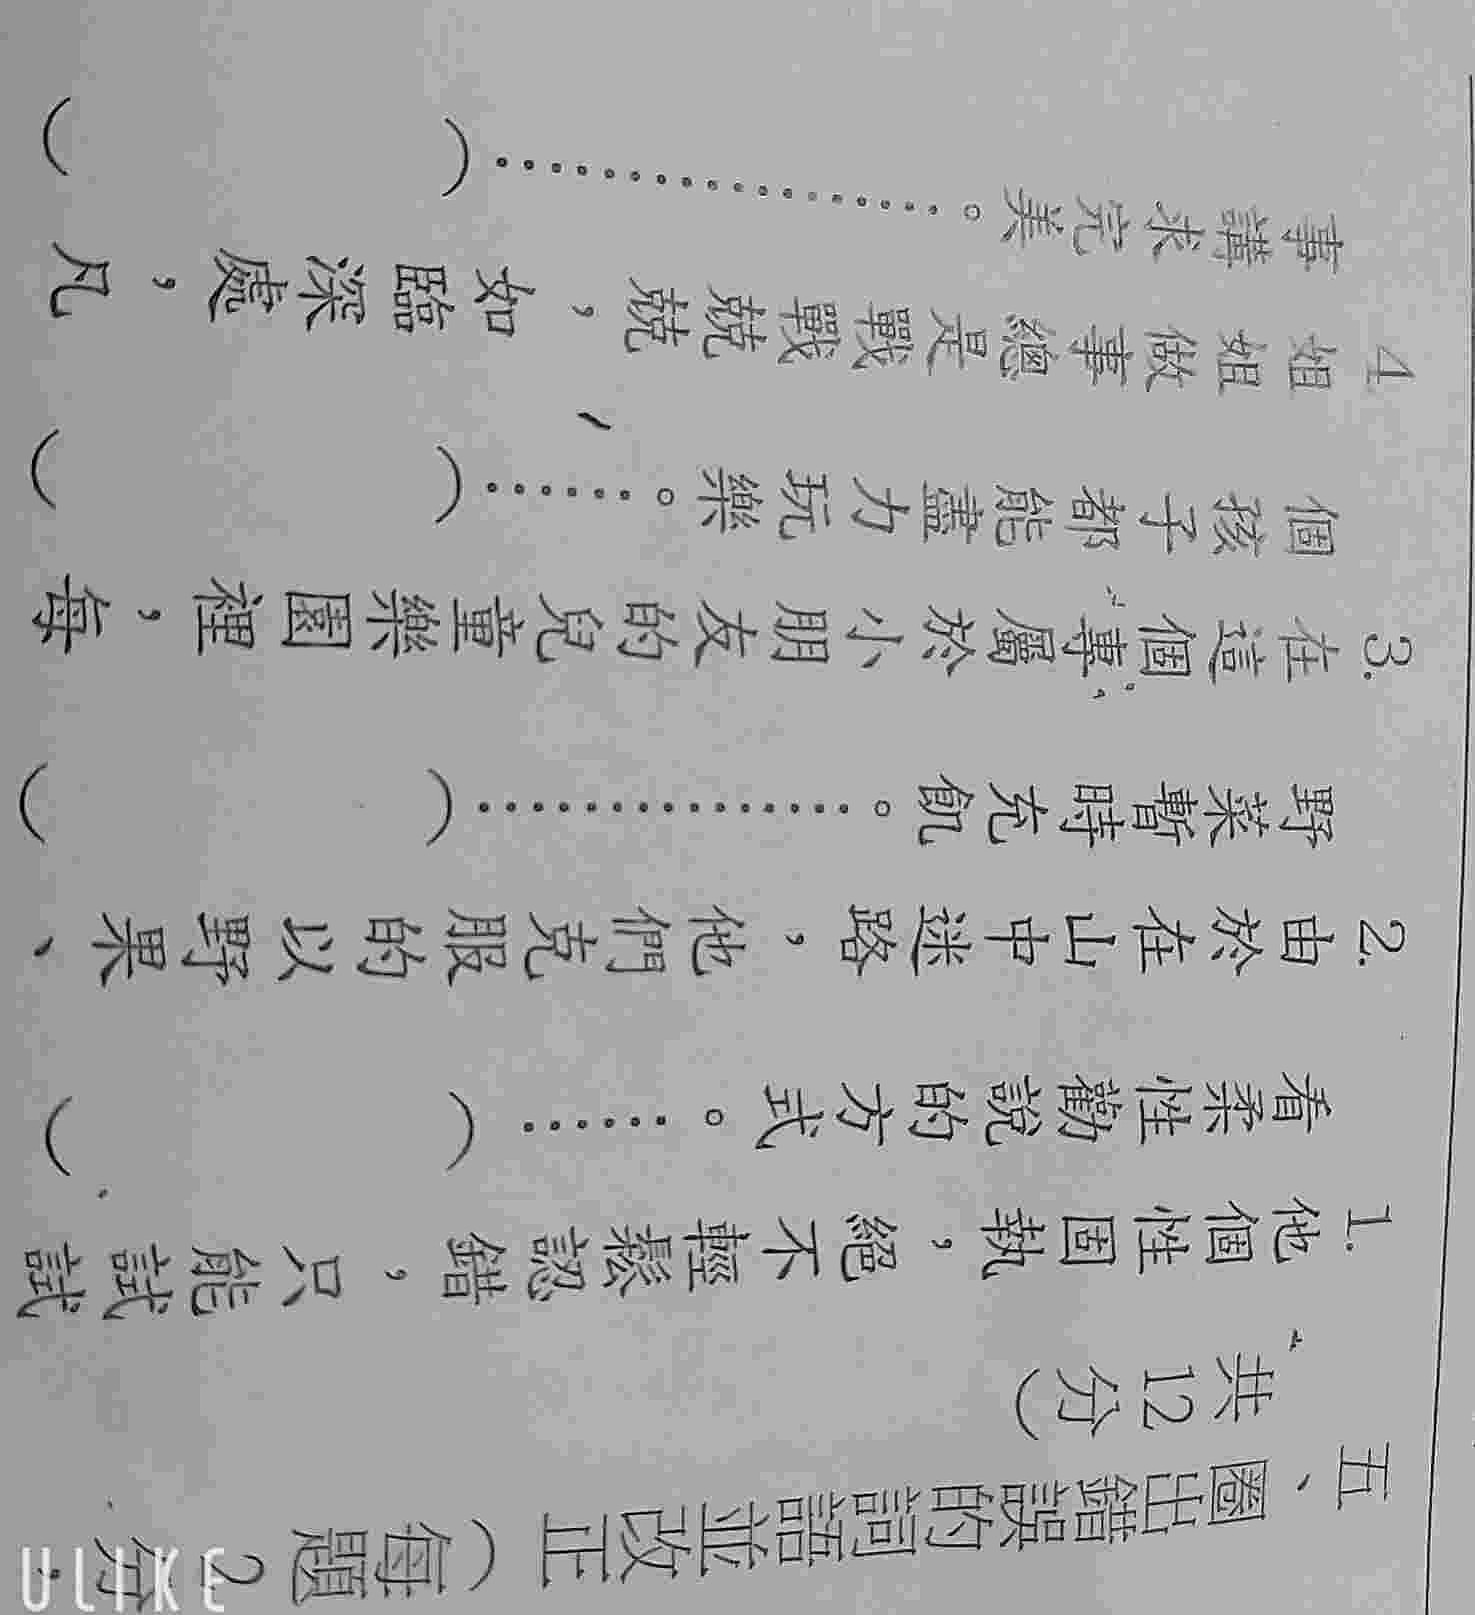 五、圈出錯誤的詞語並改正（每題2分，
共12分）
1.他個性固執，絕不輕鬆認錯，只能試試
看柔性勸說的方式。⋯⋯（　　　　）
2.由於在山中迷路，他們克服的以野果、
野菜暫時充飢。⋯⋯⋯⋯⋯（　　　　）
3.在這個專屬於小朋友的兒童樂園裡，每
個孩子都能盡力玩樂。⋯⋯（　　　　）
4.姐姐做事總是戰戰兢兢，如臨深處，凡
事講求完美。⋯⋯⋯⋯⋯⋯（　　　　）
ULIKE